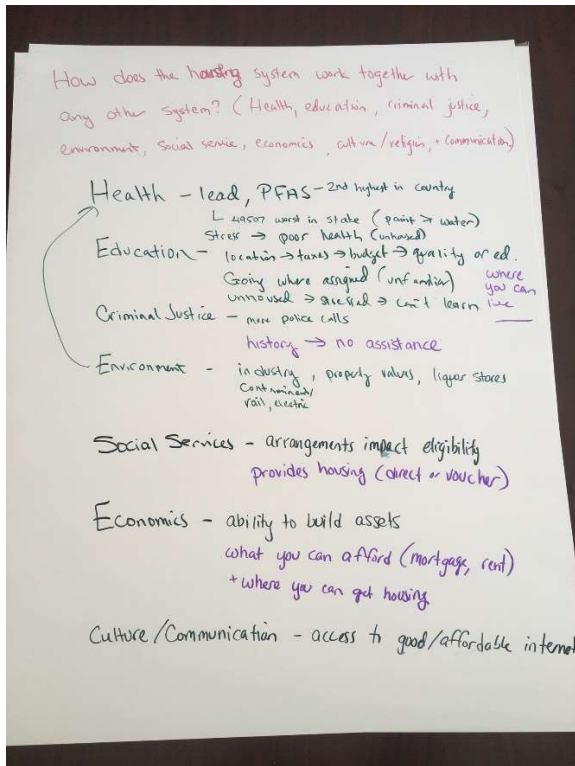 How does the housing system work together with
any other system? (Health, education, criminal justice,
environment, social service, economics, culture/religion, + communication)
Health - lead, PFAS - 2nd highest in country
L 49507 worst in state (paint > water)
Stress → poor health (unhoused)
Education - location → taxes → budget → quality or ed.
Going where assigned (unfamiliar)
unhoused → stressed → can't learn
where
you can
live
Criminal Justice - more police calls
history → no assistance
Environment - industry, property values, liquor stores
contaminent/
rail, electric
Social Services - arrangements impact eligibility
provides housing (direct or voucher)
Economics - ability to build assets
what you can afford (mortgage, rent)
+ where you can get housing
Culture/Communication - access to good/affordable internet